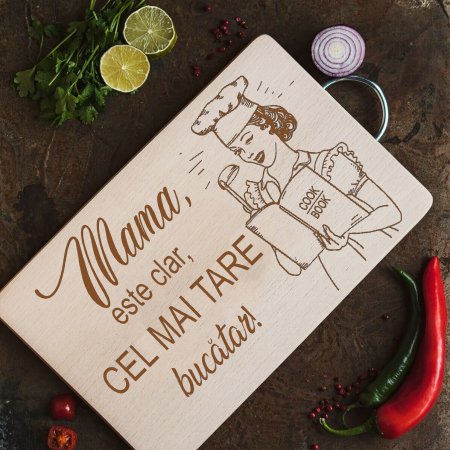 Mama,
este clar,
CEL MAI TARE
bucătar!
COOK
BOOK